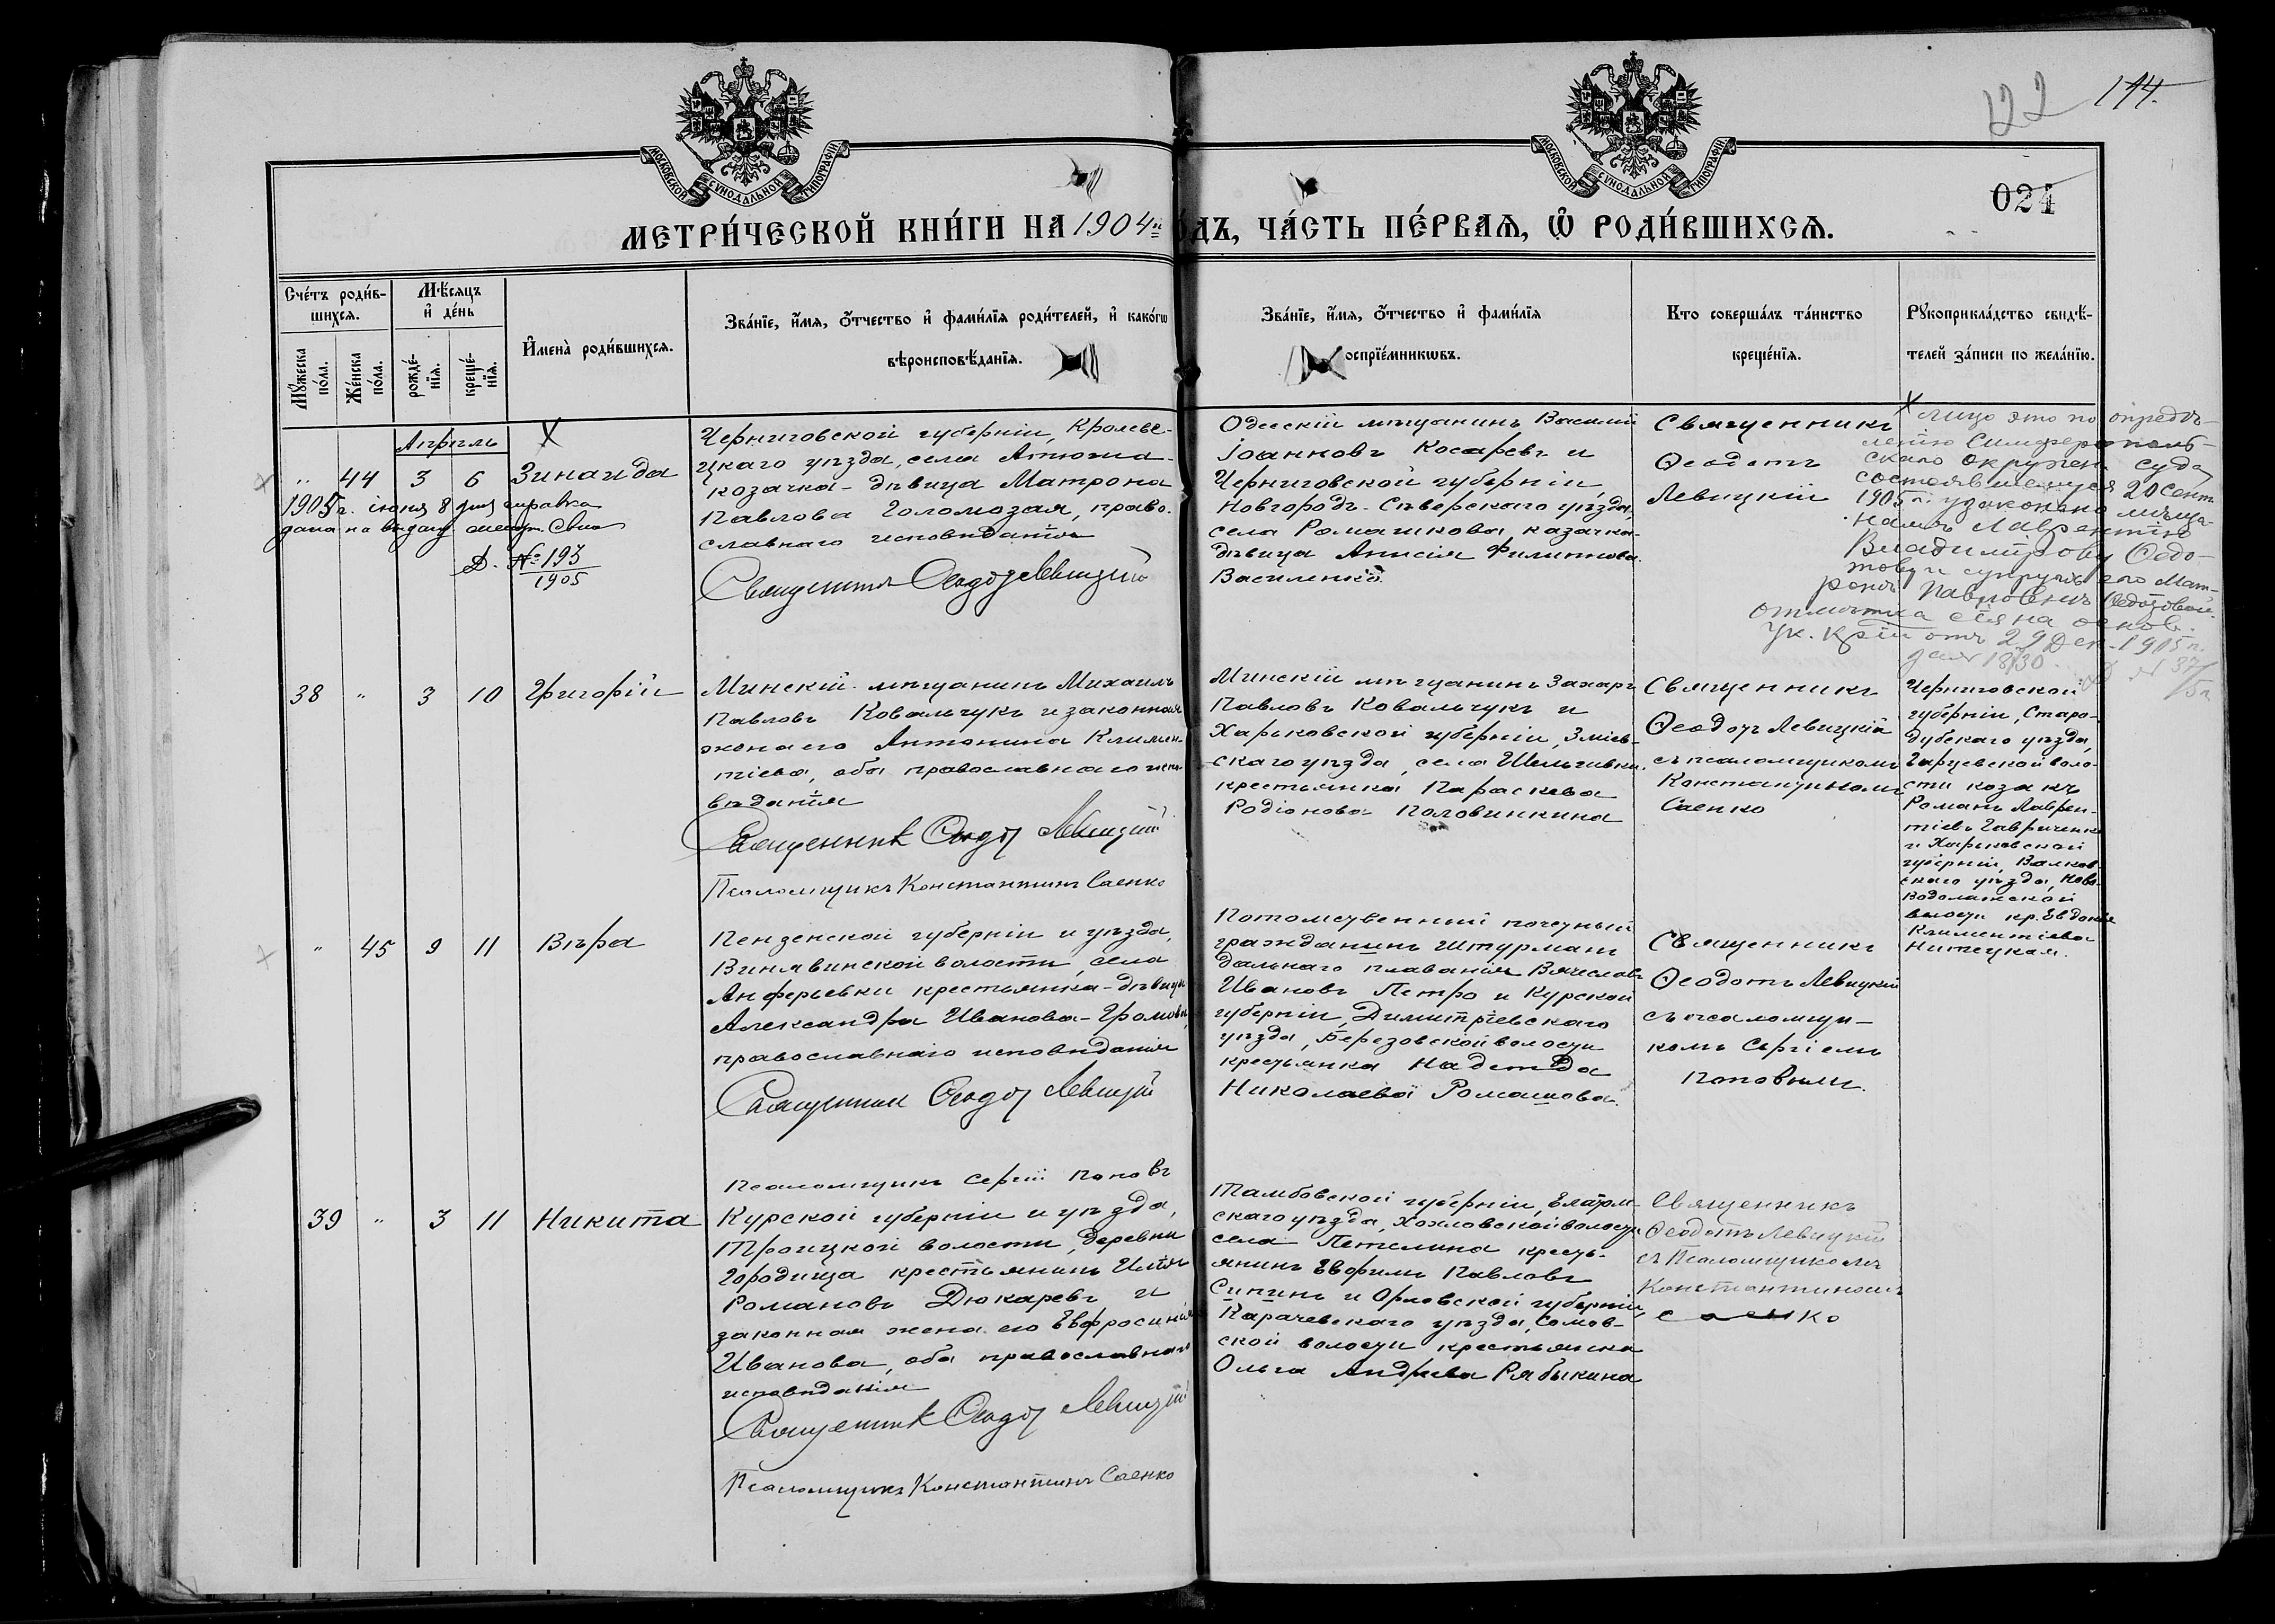 122 114.
024
МОСКОВСКОЙ СУНОДАЛЬНОЙ ТИПОГРАФІИ
МОСКОВСКОЙ СУНОДАЛЬНОЙ ТИПОГРАФІИ
МЕТРИ́ЧЕСКОЙ КНИ́ГИ НА 1904й
ГО́ДЪ, ЧА́СТЬ ПЕ́РВАѦ, Ѽ РОДИ́ВШИХСѦ.
Сче́тъ роди́в-
шихсѧ.
Мꙋ́жеска по́ла.
Же́нска по́ла.
Мѣ́сѧцъ и҆ де́нь
рожде́-
нїѧ.
креще́-
нїѧ.
И҆мена̀ роди́вшихсѧ.
Зва́нїе, и҆́мѧ, ѻ҆́тчество и҆ фами́лїѧ роди́телей, и҆ како́гѡ
вѣроисповѣ́данїѧ.
Зва́нїе, и҆́мѧ, ѻ҆́тчество и҆ фами́лїѧ
оспрїе́мникѡвъ.
Кто совершáлъ та́инство
креще́нїѧ.
Рꙋкоприкла́дство свидѣ́-
телей за́писи по жела́нїю.
Апрѣль
" 44 3 6 Зинаида
1905 г. іюня 8 дня справка
дана на выдачу
Д. № 193
1905
Черниговской губерніи, Кролеве-
цкаго уѣзда, села Атюша
козачка-дѣвица Матрона
Павлова Голомозая, право-
славнаго исповѣданія
Священникъ Ѳеодотъ Левицкій
Одесскій мѣщанинъ Василій
Іоанновъ Косаревъ и
Черниговской губерніи,
Новгородъ-Сѣверскаго уѣзда,
села Ромашкова казачка-
дѣвица Анисія Филиппова
Василенко
Священникъ
Ѳеодотъ
Левицкій
Х лицо это по опредѣ-
ленію Симферополь-
скаго окружн. суда
состоявшемуся 20 сент.
1905 г. узаконено мѣща-
намъ Лаврентію
Владимірову Ѳедо-
тову и супругѣ его Мат-
ронѣ Павловнѣ Ѳедотовой.
отмѣтка сія на основ.
Ук. от 29 Дек. 1905 г.
за № 18730.
Д № 37/5 г.
38 " 3 10 Григорій
Минскій мѣщанинъ Михаилъ
Павловъ Ковальчукъ и законная
жена его Антонина Климен-
тіева, оба православнаго испо-
вѣданія
Священникъ Ѳеодотъ Левицкій
Псаломщикъ Константинъ Саенко
Минскій мѣщанинъ Захаръ
Павловъ Ковальчукъ и
Харьковской губерніи, Зміев-
скаго уѣзда, села
крестьянка Параскева
Родіонова Половинкина
Священникъ
Ѳеодотъ Левицкій
съ псаломщикомъ
Константиномъ
Саенко
Черниговской
губерніи, Старо-
дубскаго уѣзда,
Гарцевской воло-
сти козакъ
Романъ Лаврен-
тіевъ Гавриченко
и Харьковской
губерніи, Валков-
скаго уѣзда, Ново-
водолажской
волости кр. Евдокія
Климентіева
" 45 9 11 Вѣра
Пензенской губерніи и уѣзда,
волости, села
Анферьевки крестьянка-дѣвица
Александра Иванова-Громова,
православнаго исповѣданія
Священникъ Ѳеодотъ Левицкій
Псаломщикъ Сергій Поповъ
Потомственный почетный
гражданинъ Штурманъ
дальнаго плаванія Вячеславъ
Ивановъ Петро и Курской
губерніи, Димитріевскаго
уѣзда, Березовской волости
крестьянка Надежда
Николаева Ромашова.
Священникъ
Ѳеодотъ Левицкій
съ псаломщи-
комъ Сергіемъ
Поповымъ.
39 " 3 11 Никита
Курской губерніи и уѣзда,
Троицкой волости, деревни
Городища крестьянинъ Илія
Романовъ Дюкаревъ и
законная жена его Евфросинія
Иванова, оба православнаго
исповѣданія
Священникъ Ѳеодотъ Левицкій
Псаломщикъ Константинъ Саенко
Тамбовской губерніи, Елатом-
скаго уѣзда, волости
села Петелина кресть-
янинъ Евфимъ Павловъ
Сипинъ и Орловской губерніи,
Карачевскаго уѣзда, Сомов-
ской волости крестьянка
Ольга Андреева Рябыкина
Священникъ
Ѳеодотъ Левицкій
съ Псаломщикомъ
Константиномъ
Саенко